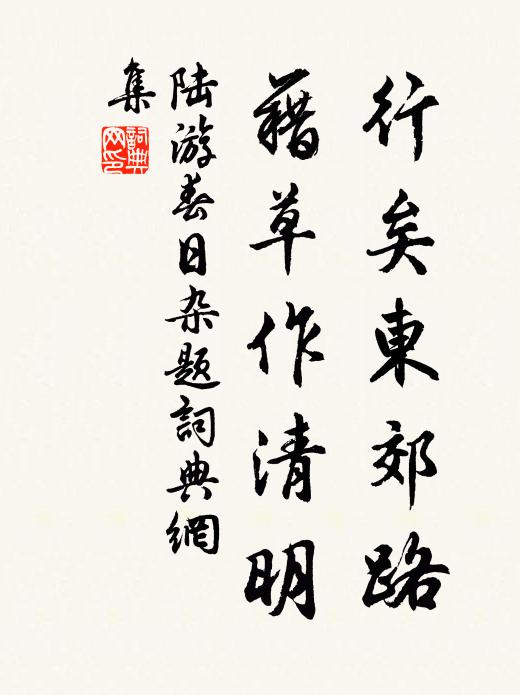 行矣東郊路
藉草作清明
陆游春日杂题詞典網
集
詞典
网印